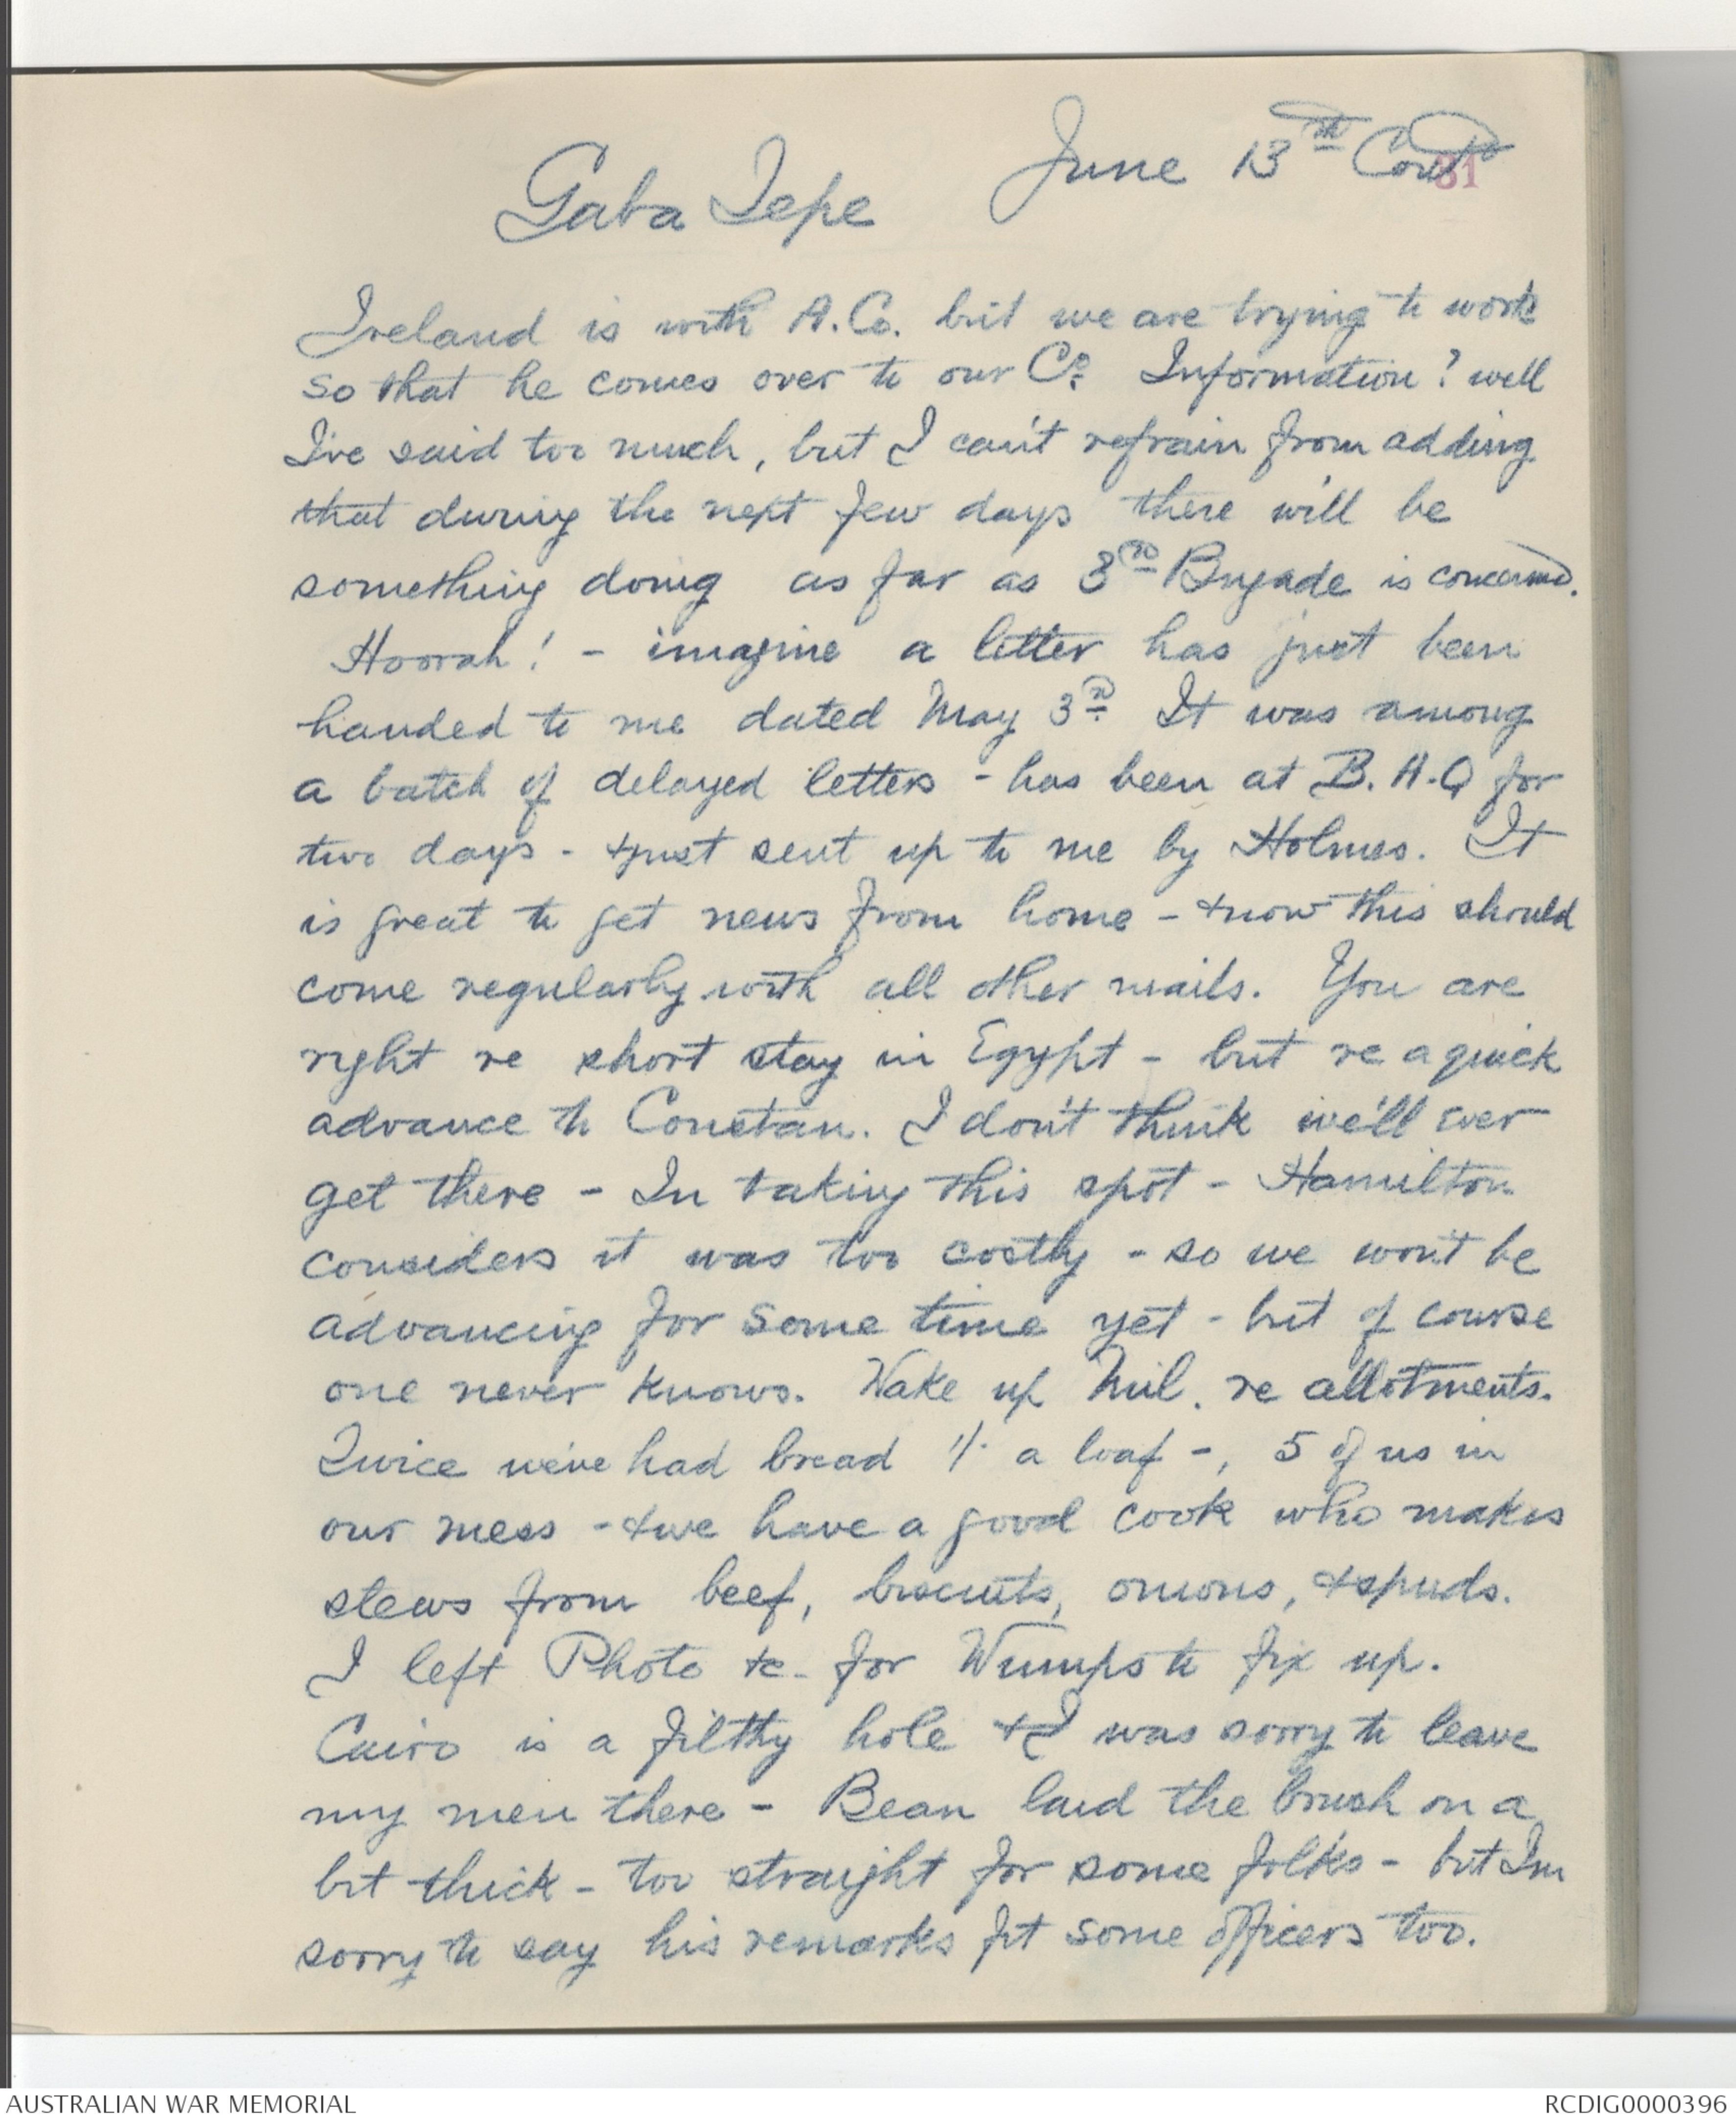 June 13th Contd
31
Gaba Tepe
Ireland is with A.Co. but we are trying to work
so that he comes over to our Co. Information? well
I've said too much, but I can't refrain from adding
that during the next few days there will be
something doing as far as 3rd Brigade is concerned.
Hoorah! - imagine a letter has just been
handed to me dated May 3rd It was among
a batch of delayed letters - has been at B.H.Q for
two days - & just sent up to me by Holmes. It
is great to get news from home - & now this should
come regularly with all other mails. You are
right re short stay in Egypt - but re a quick
advance to Constan. I don't think we'll ever
get there - In taking this spot - Hamilton
considers it was too costly - so we won't be
advancing for some time yet - but of course
one never knows. Wake up Mil. re allotments.
Twice we've had bread 1/- a loaf -, 5 of us in
our mess - & we have a good cook who makes
stews from beef, biscuits, onions, & spuds.
I left Photo &c. for Wumps to fix up.
Cairo is a filthy hole & I was sorry to leave
my men there - Bean laid the brush on a
bit thick - too straight for some folks - but I'm
sorry to say his remarks fit some officers too.
AUSTRALIAN WAR MEMORIAL
RCDIG0000396